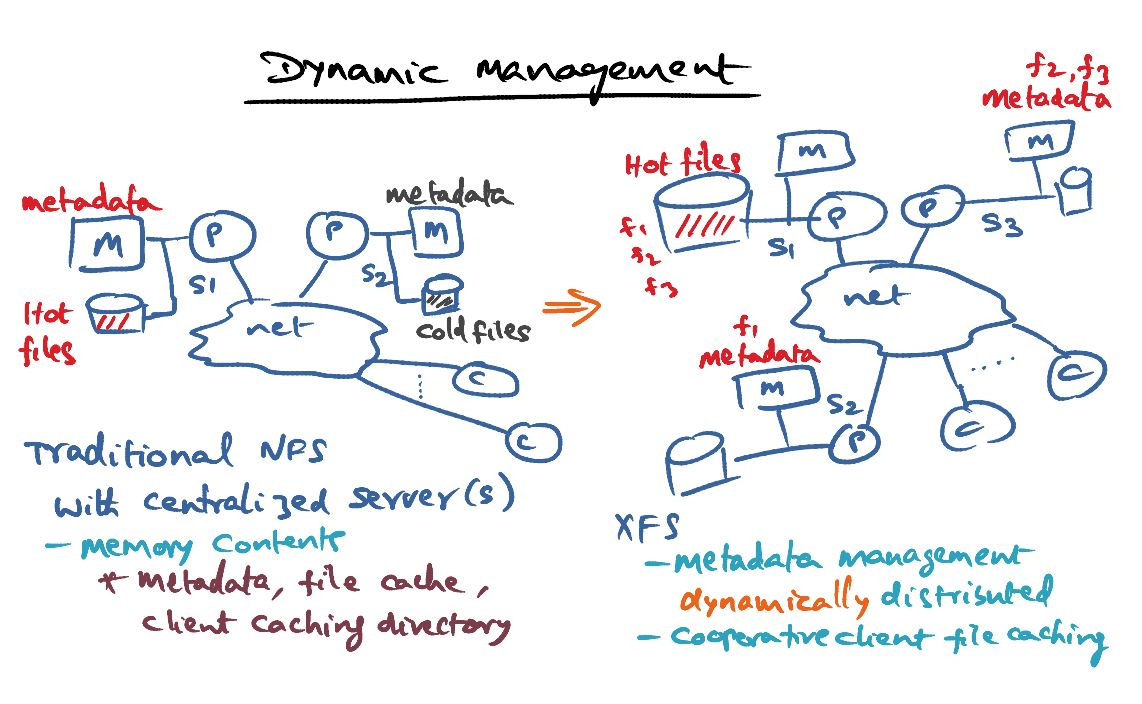 Dynamic management
metadata
M
P
S1
Hot
files
P
metadata
M
S2
cold files
net
C
C
Traditional NFS
with centralized server(s)
- memory contents
* metadata, file cache,
client caching directory
Hot files
f1
s2
f3
M
P
S1
f2, f3
metadata
M
P
S3
net
f1
metadata
M
S2
P
C
C
XFS
- metadata management
dynamically distributed
- cooperative client file caching